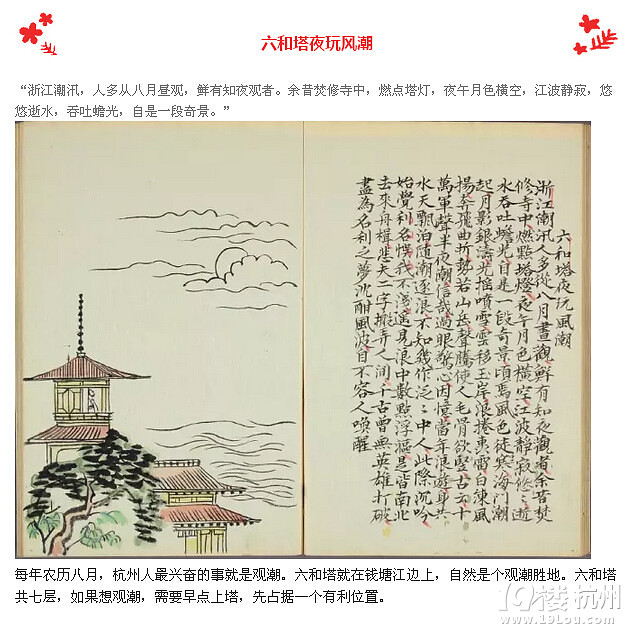 六和塔夜玩风潮
“浙江潮汛，人多从八月昼观，鲜有知夜观者。余昔焚修寺中，燃点塔灯，夜午月色横空，江波静寂，悠
悠逝水，吞吐蟾光，自是一段奇景。”
六和塔夜玩風潮
浙江潮汛人多從八月晝觀鮮有知夜觀者余昔焚
修寺中燃點塔燈夜午月色橫空江波靜寂悠〻逝
水吞吐蟾光自是一段奇景頃焉風色徒寒海門潮
起月影銀濤光搖噴雪雲移玉岸浪捲轟雷白練風
揚奔飛曲折勢若山岳聲騰使人毛骨欲豎古云十
萬軍聲半夜潮信哉過眼驚心因憶當年浪遊身共
水天飄泊隨潮逐浪不知幾作泛〻中人此際沉吟
始覺利名悞我不淺遥易浪中數點浮漚是皆南北
去來舟楫悲夫二字搬弄人間千古曾無英雄打破
盡為名利之夢沉酣風波自不容人喚醒
每年农历八月，杭州人最兴奋的事就是观潮。六和塔就在钱塘江边上，自然是个观潮胜地。六和塔
共七层，如果想观潮，需要早点上塔，先占据一个有利位置。
19楼 杭州
www.19lou.com